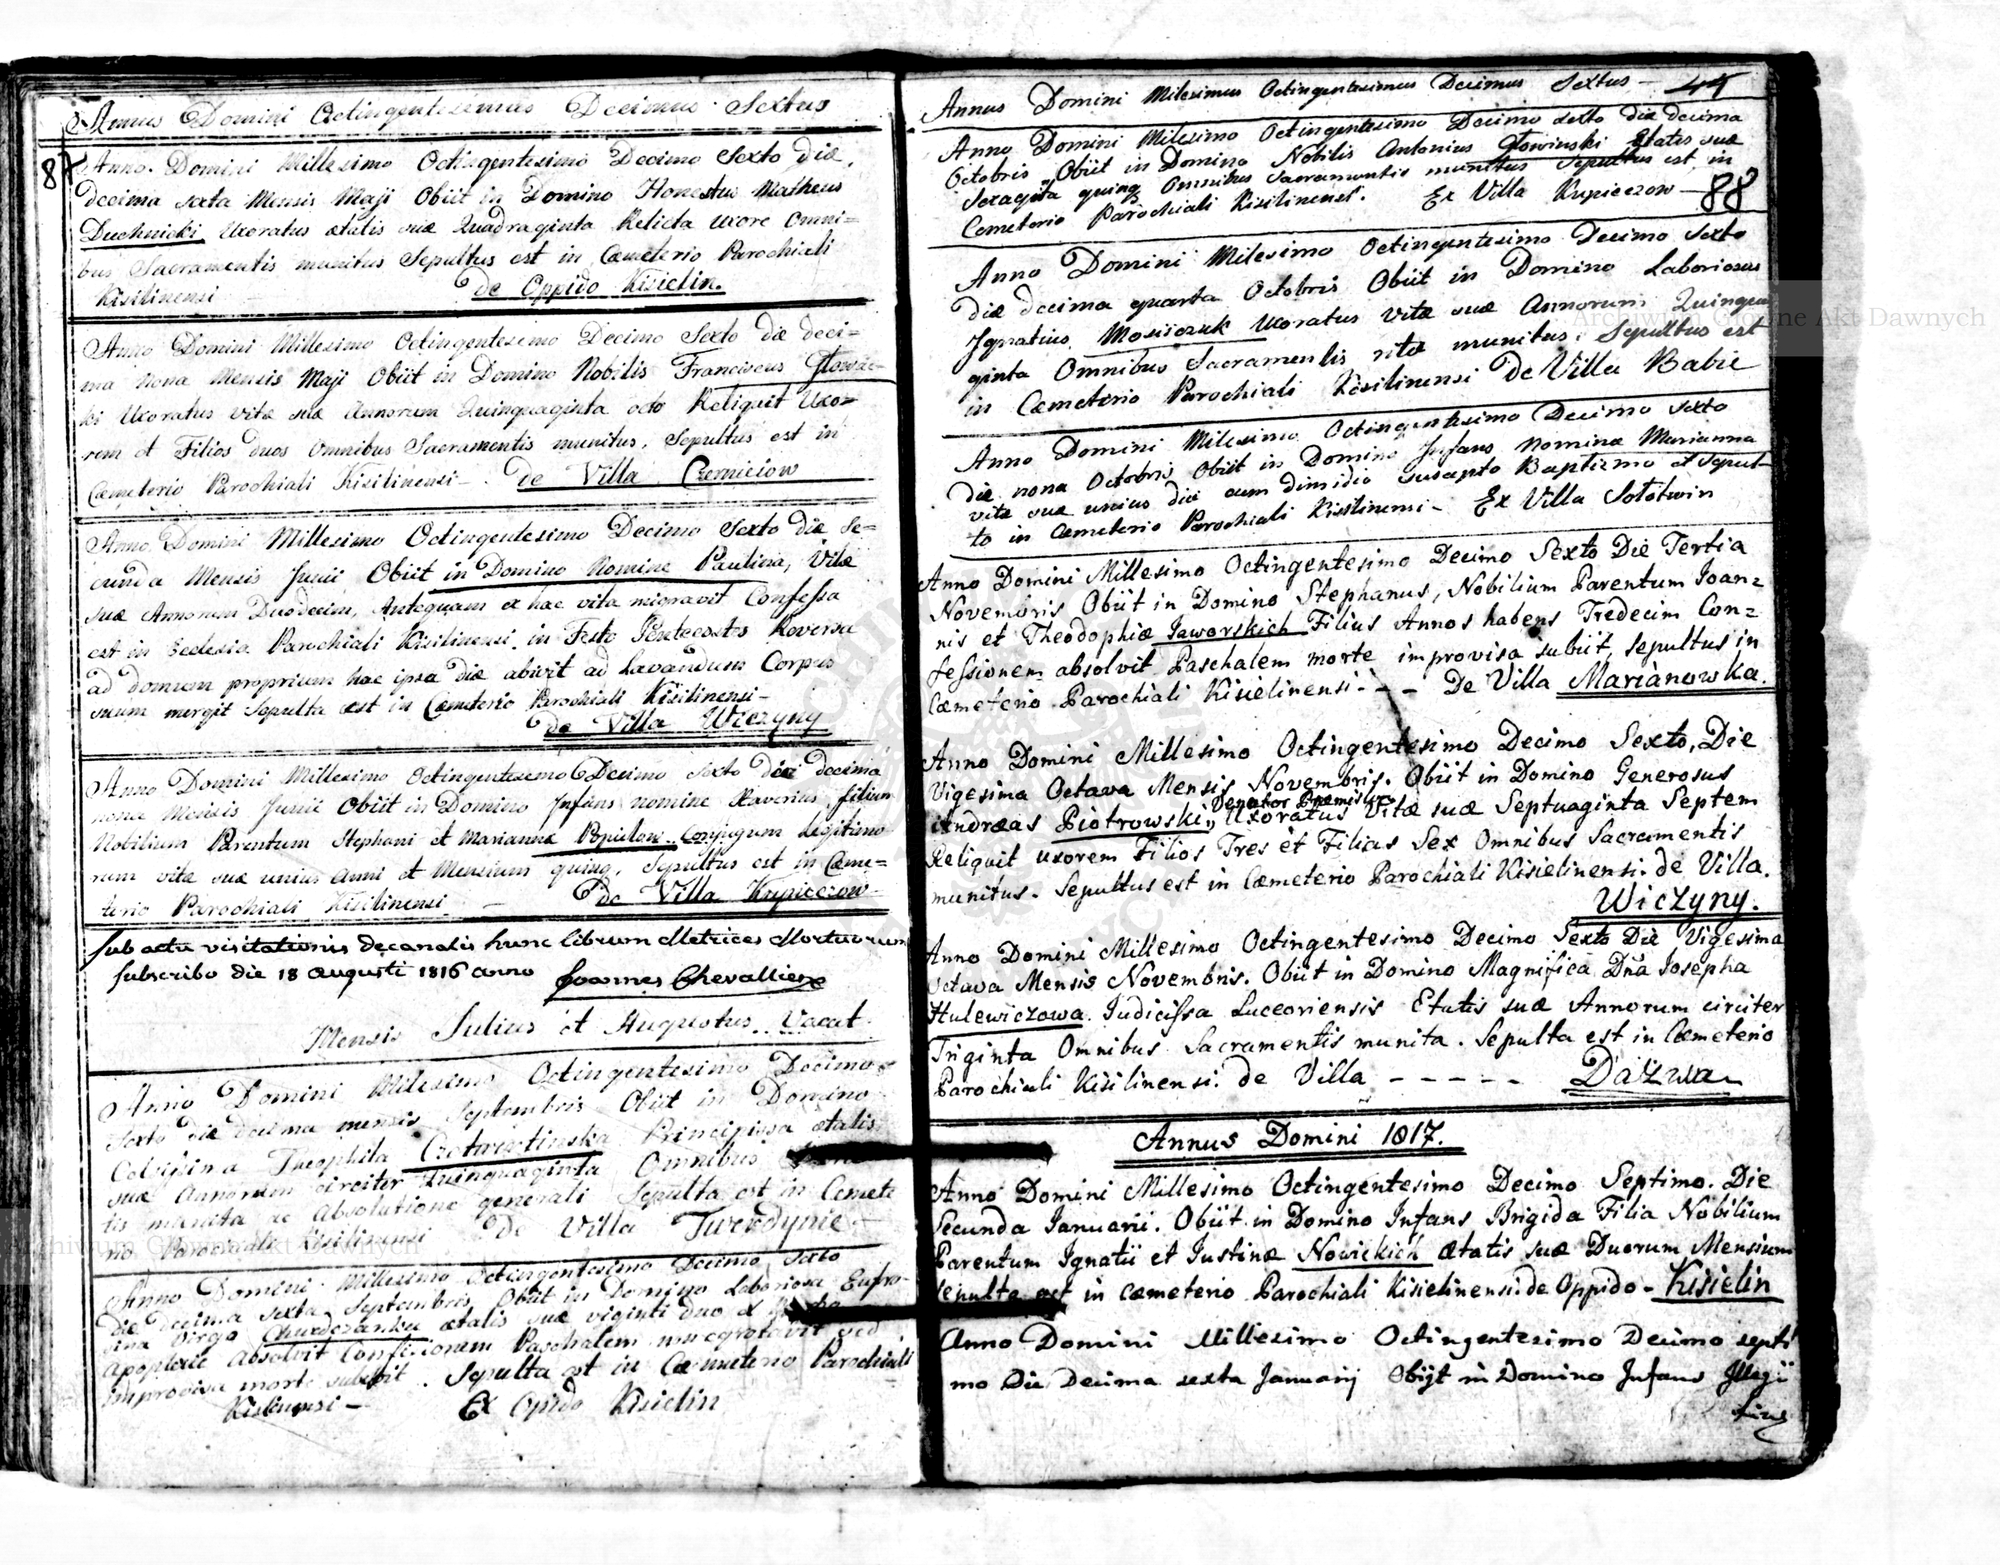 Annus Domini Octingentesimus Decimus Sextus
87
Anno Domini Millesimo Octingentesimo Decimo Sexto die
decima sexta Mensis Maji Obiit in Domino Honestus Matheus
Duchnicki Uxoratus ætatis suæ Quadraginta Relicta Uxore Omni=
bus Sacramentis munitus Sepultus est in Cæmeterio Parochiali
Kisilinensi de Oppido Kisielin.
Anno Domini Millesimo Octingentesimo Decimo Sexto die deci=
ma nona Mensis Maji Obiit in Domino Nobilis Franciscus Głowac=
ki Uxoratus vitæ suæ Annorum Quinquaginta octo Reliquit Uxo=
rem et Filios duos Omnibus Sacramentis munitus. Sepultus est in
Cæmeterio Parochiali Kisilinensi - de Villa Czerniciow
Anno Domini Millesimo Octingentesimo Decimo Sexto die Se=
cunda Mensis Junii Obiit in Domino Nomine Paulina, Vitæ
suæ Annorum Duodecim, Antequam ex hac vita migravit Confessa
est in Ecclesia Parochiali Kisilinensi in Festo Pentecostes Reversa
ad domum propriam hac ipsa die abivit ad lavandum Corpus
suum mergit Sepulta est in Cæmeterio Parochiali Kisilinensi -
de Villa Wiczyny
Anno Domini Millesimo Octingentesimo Decimo Sexto die decima
nona Mensis Junii Obiit in Domino Infans nomine Xaverius filius
Nobilium Parentum Stephani et Mariannæ Conjugum legitimo
rum vitæ suæ unius Anni et Mensium quinq. Sepultus est in Cæme=
terio Parochiali Kisilinensi - de Villa Krupieczow -
Sub actu visitationis decanalis hunc librum Metrices Mortuorum
subscribo die 18 augusti 1816 anno Joannes Chevallier
Mensis Julius et Augustus Vacat
Anno Domini Milesimo Octingentesimo Decimo
Sexto die decima mensis Septembris Obiit in Domino
Celsissima Theophila Czetwertinska Principissa ætatis
suæ Annorum circiter Quinquaginta Omnibus
tis munita ac Absolutione generali Sepulta est in Cemete
rio Parochiali Kisilinensi De Villa Twerdynie
Anno Domini Millesimo Octingentesimo Decimo Sexto
die decima sexta Septembris Obiit in Domino Laboriosa Eufro-
sina Virgo ætatis suæ viginti duo ex
Apoplexie Absolvit Confessionem Paschalem sed
improvisa morte subiit. Sepulta est in Cæmeterio Parochiali
Kisilinensi - Ex Opido Kisielin
Annus Domini Milesimus Octingentesimus Decimus Sextus - 44
Anno Domini Milesimo Octingentesimo Decimo sexto die decima
Octobris Obiit in Domino Nobilis Antonius Głowinski Etatis suæ
Sexaginta quinq Omnibus Sacramentis munitus Sepultus est in
Cemeterio Parochiali Kisilinensi. Ex Villa Krupieczow -
88
Anno Domini Milesimo Octingentesimo Decimo Sexto
die decima quarta Octobris Obiit in Domino Laboriosus
Ignatius Mosiiczuk Uxoratus Vitæ suæ Annorum Quinqua
ginta Omnibus Sacramentis rite munitus. Sepultus est
in Cæmeterio Parochiali Kisilinensi De Villa Babie
Anno Domini Milesimo Octingentesimo Decimo Sexto
die nona Octobris Obiit in Domino Infans nomine Marianna
vitæ suæ unius die cum dimidio suscepto Baptismo et Sepul-
ta in Cæmeterio Parochiali Kisilinensi - Ex Villa Sołotwin
Anno Domini Millesimo Octingentesimo Decimo Sexto Die Tertia
Novembris Obiit in Domino Stephanus, Nobilium Parentum Ioan=
nis et Theodophiæ Iaworskich Filius Annos habens Tredecim Con=
fessionem absolvit Paschalem morte improvisa subiit, sepultus in
Cæmeterio Parochiali Kisielinensi - - - De Villa Marianowka.
Anno Domini Millesimo Octingentesimo Decimo Sexto, Die
Vigesima Octava Mensis Novembris. Obiit in Domino Generosus
Venator
Andræas Piotrowski, Uxoratus Vitæ suæ Septuaginta Septem
Reliquit uxorem Filios Tres et Filias Sex Omnibus Sacramentis
munitus. Sepultus est in Cæmeterio Parochiali Kisielinensi. de Villa.
Wiczyny.
Anno Domini Millesimo Octingentesimo Decimo Sexto Die Vigesima
Octava Mensis Novembris. Obiit in Domino Magnifica Dna Iosepha
Hulewiczowa Iudicissa Luceoriensis Etatis suæ Annorum circiter
Triginta Omnibus Sacramentis munita. Sepulta est in Cæmeterio
Parochiali Kisilinensi. de Villa - - - - - Dażwa
Annus Domini 1817.
Anno Domini Millesimo Octingentesimo Decimo Septimo. Die
Secunda Ianuarii. Obiit in Domino Infans Brigida Filia Nobilium
Parentum Ignatii et Iustinæ Nowickich ætatis suæ Duorum Mensium
Sepulta est in Cæmeterio Parochiali Kisielinensi. de Oppido - Kisielin
Anno Domini Millesimo Octingentesimo Decimo septi
mo Die Decima sexta Januarij Obijt in Domino Infans Illegi
time
Archiwum Główne Akt Dawnych
Archiwum Główne Akt Dawnych